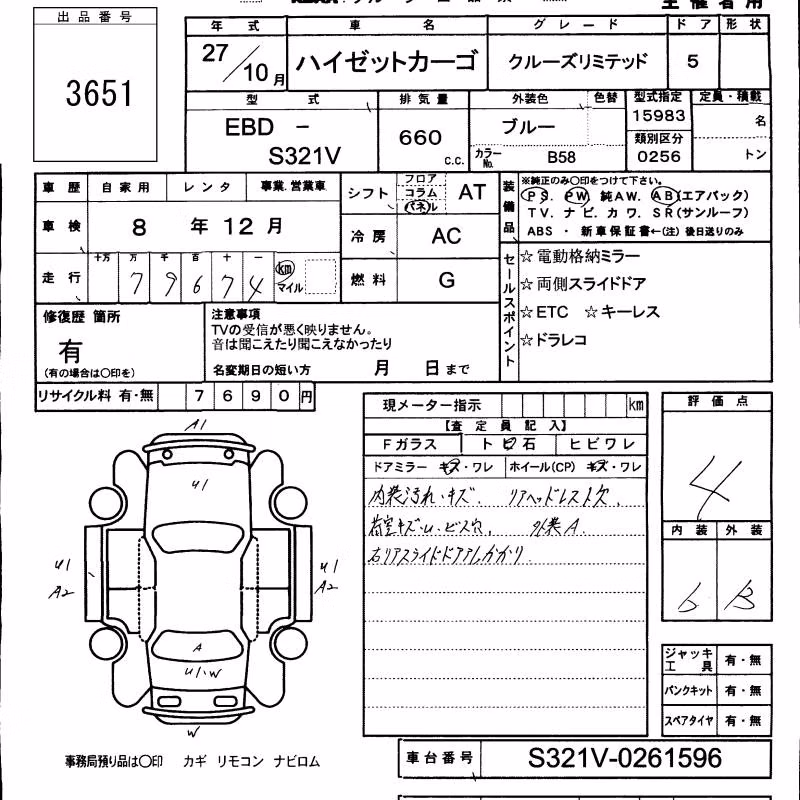 出品番号
3651
年式 車名 グレード ドア 形状
27/10月 ハイゼットカーゴ クルーズリミテッド 5
型式 排気量 外装色 色替 型式指定 定員・積載
EBD － S321V 660 c.c. ブルー 15983 名
カラーNo. B58 類別区分 0256 トン
車歴 自家用 レンタ 事業.営業車
シフト フロア コラム パネル AT
装備品 ※純正のみ○印をつけて下さい。
PS. PW 純AW. AB(エアバック)
TV. ナビ. カワ. SR(サンルーフ)
ABS ・ 新車保証書←(注) 後日送りのみ
車検 8年12月
冷房 AC
走行 十万 万 千 百 十 一
79674 km マイル
燃料 G
セールスポイント
☆電動格納ミラー
☆両側スライドドア
☆ETC ☆キーレス
☆ドラレコ
修復歴 箇所
有
(有の場合は○印を)
注意事項
TVの受信が悪く映りません。
音は聞こえたり聞こえなかったり
名変期日の短い方 月 日まで
リサイクル料 有・無 7690円
現メーター指示 km
【査定員記入】
Fガラス トビ石 ヒビワレ
ドアミラー キズ・ワレ ホイール(CP) キズ・ワレ
内装汚れ・キズ、 リアヘッドレスト欠、
荷室キズ・U、ビス穴、 外装A、
右リアスライドドアアしかかり
評価点
4
内装 外装
b B
A1
U1
U1
A2
U1
A2
A
U1・W
W
ジャッキ工具 有・無
パンクキット 有・無
スペアタイヤ 有・無
事務局預り品は○印 カギ リモコン ナビロム
車台番号 S321V-0261596